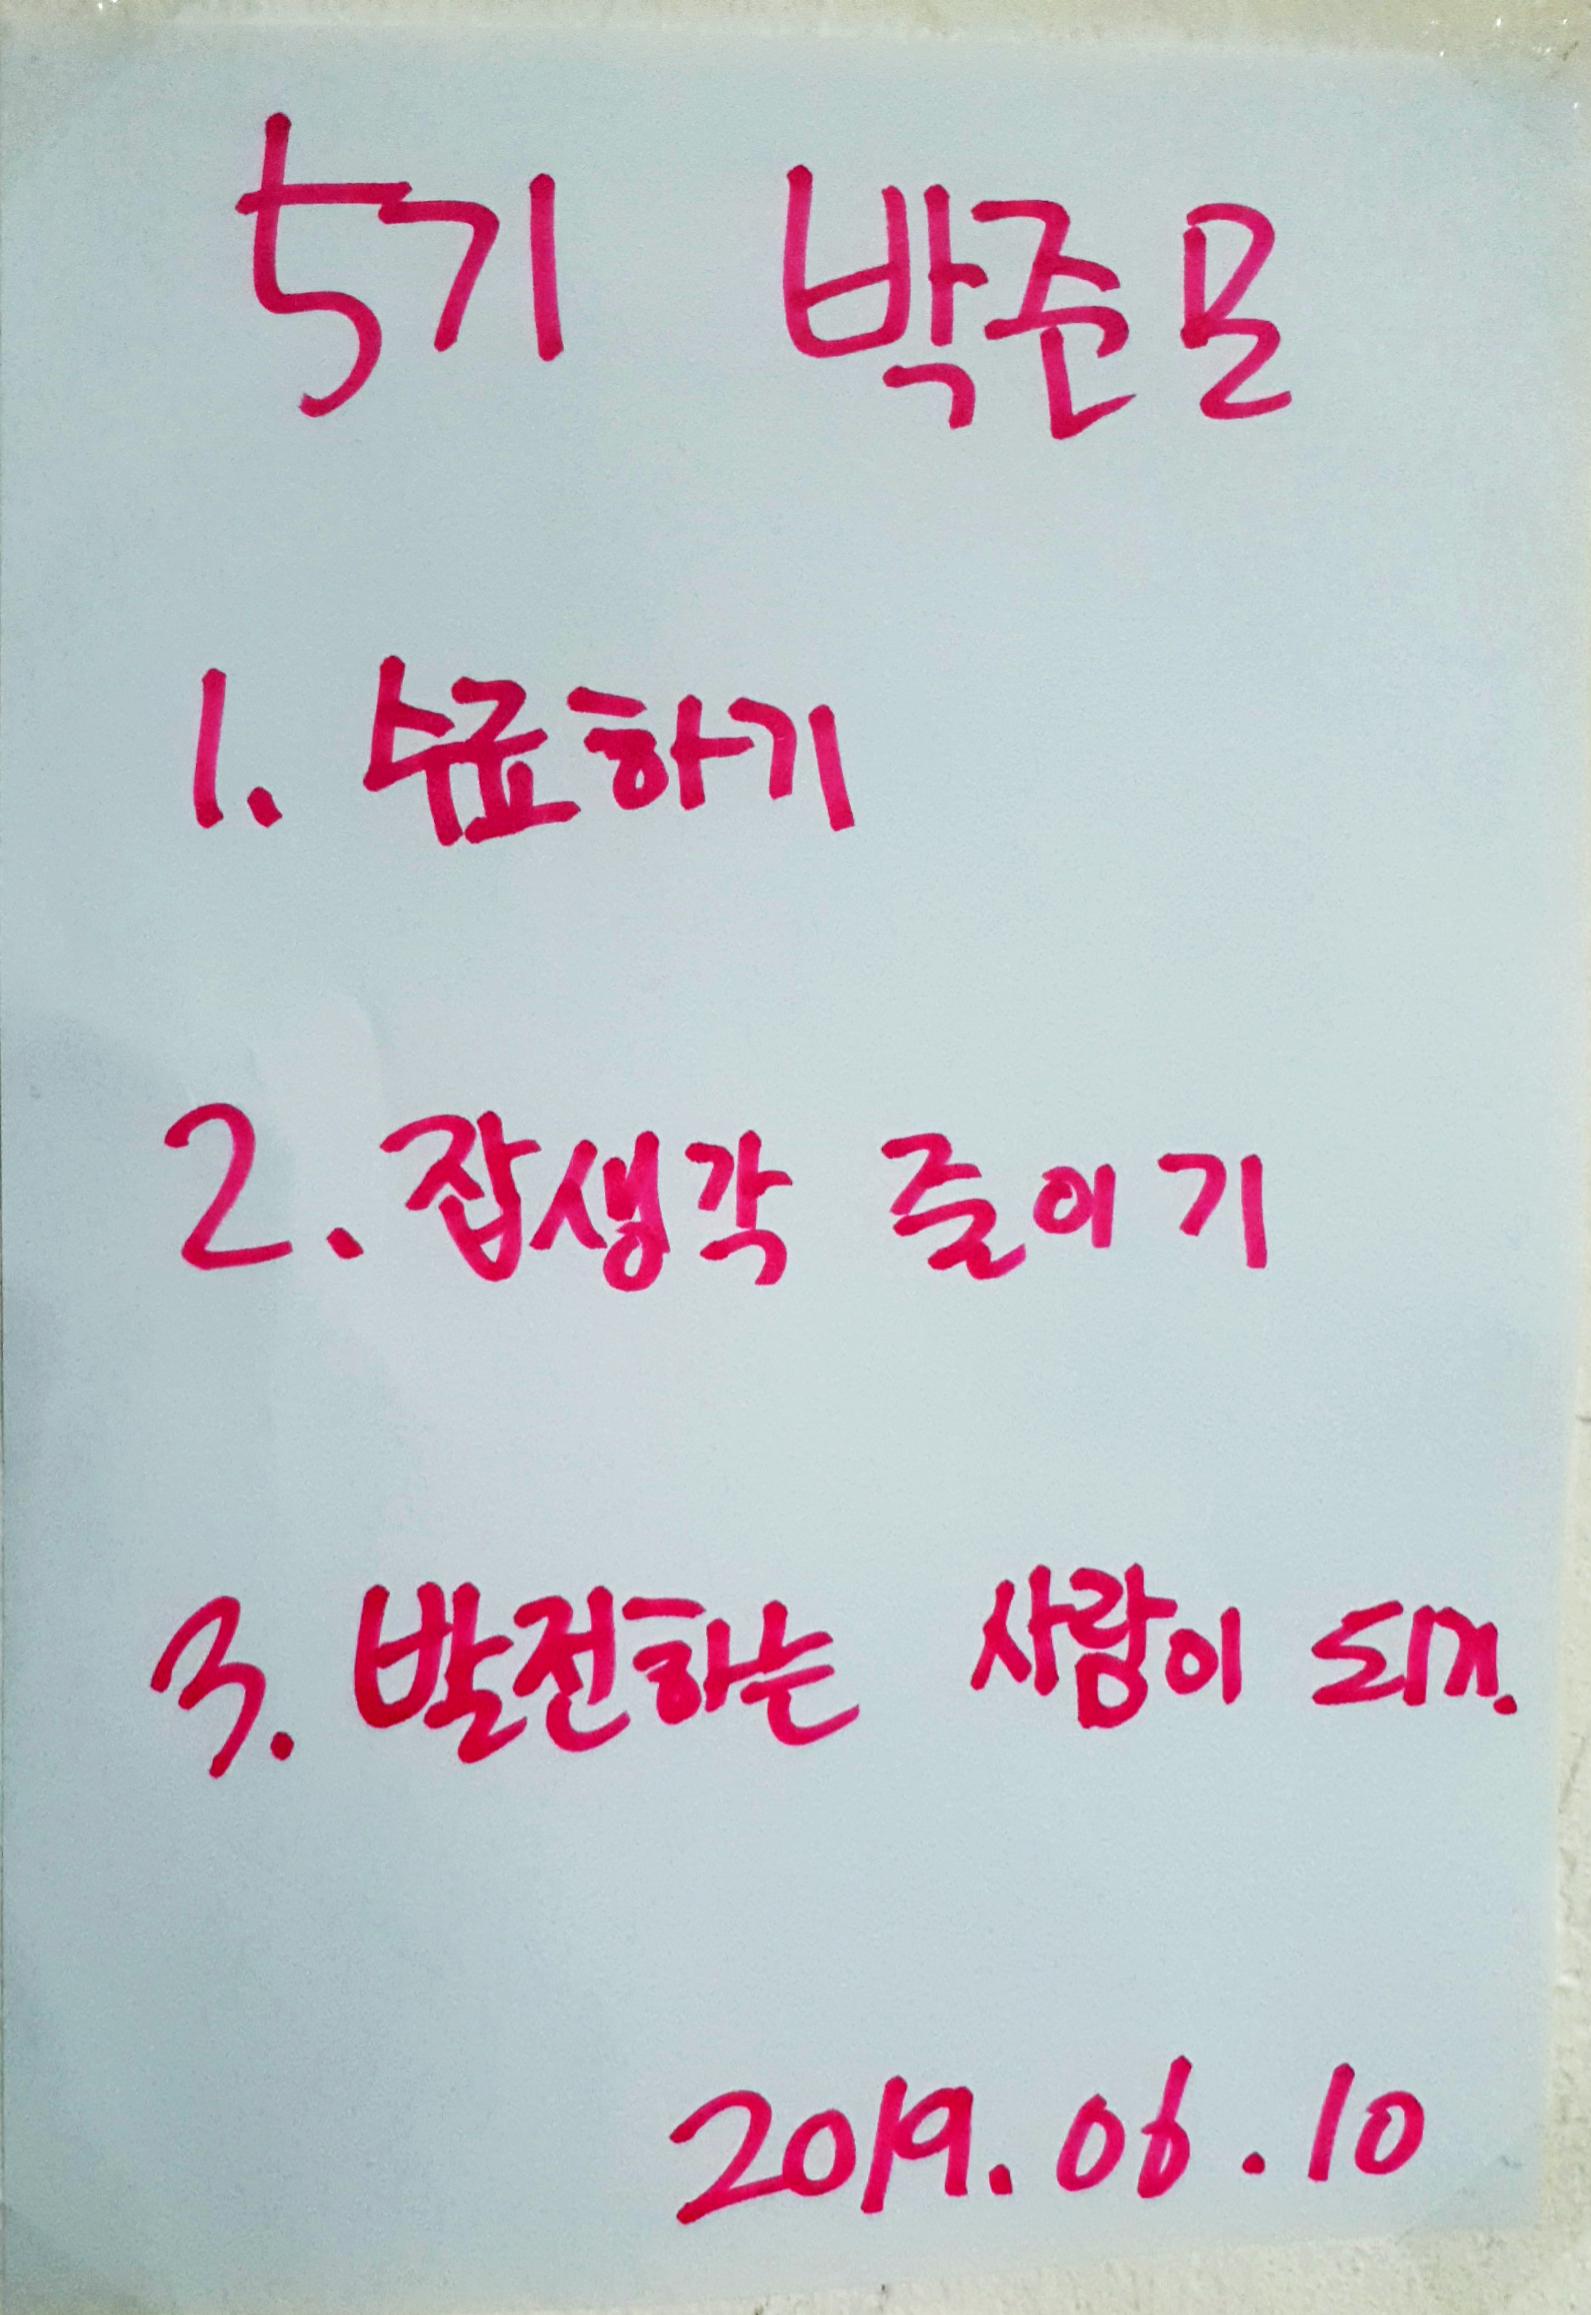 5기 박준모
1. 수료하기
2. 잡생각 줄이기
3. 발전하는 사람이 되기.
2019.06.10